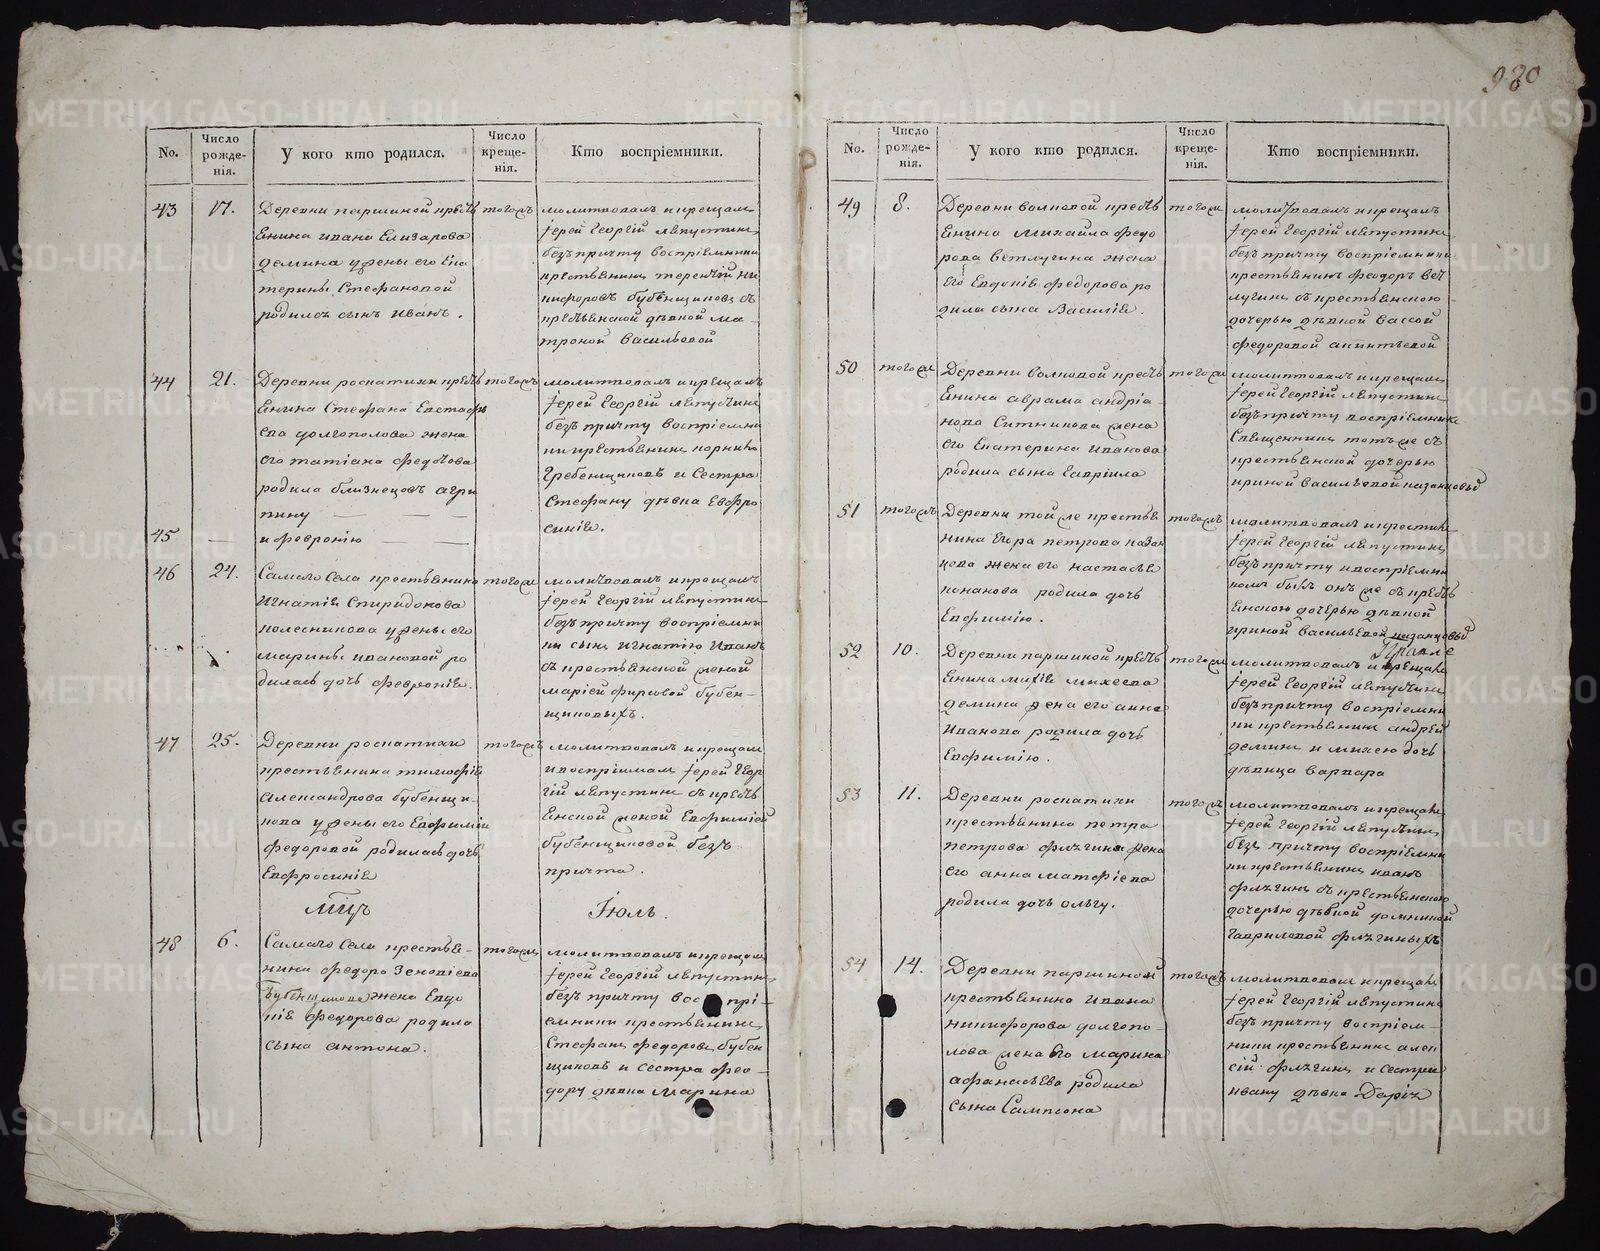 980
No.
Число рожде-
нія.
У кого кто родился.
Число креще-
нія.
Кто воспріемники.
43
17.
Деревни паршиной крестъ
янина ивана Елизарова
демина у жены его Ека
терины Стефановой
родился сынъ иванъ.
тогожъ
молитвовалъ и крещалъ
іерей Георгій Лепустинъ
безъ причту воспріемники
крестьянинъ терентій ни
кифоровъ бубенщиковъ съ
крестьянской дѣвкой ма-
троной васильевой
44
21.
Деревни роскатихи крестъ
янина Стефана Евстафь
ева долгополова жена
его татіана федотова
родила близнецовъ агри
пину
тогожъ
молитвовалъ и крещалъ
іерей Георгій Лепустинъ
безъ причту воспріемни
ки крестьянинъ корнило
Гребенщиковъ и Сестра
Стефану дѣвка Евфро
синія.
45
и февронію
46
24.
Самаго Села крестьянина
игнатія Спиридонова
колесникова у жены его
марины ивановой ро
дилась дочь февронія.
тогожъ
молитвовалъ и крещалъ
іерей Георгій Лепустинъ
безъ причту воспріемни
ки сынъ игнатію иванъ
съ крестьянской женой
маріей фирсовой бубен-
щиковыхъ.
47
25.
Деревни роскатихи
крестьянина тимофія
александрова бубенщи-
кова у жены его Евфиміи
федоровой родилась дочь
Евфросинія
тогожъ
молитвовалъ и крещалъ
и воспріималъ іерей Геор
гій Лепустинъ съ крестъ
янской женой Евфиміей
бубенщиковой безъ
причта.
мцъ
Іюль.
48
6.
Самаго Села крестья-
нина федора Зеновіева
Бубенщикова жена Евдо
кія федорова родила
сына антона.
тогожъ
молитвовалъ и крещалъ
іерей Георгій Лепустинъ
безъ причту воспрі-
емники крестьянинъ
Стефанъ федоровъ бубен
щиковъ и сестра фео-
дору дѣвка Марина
No.
Число рожде-
нія.
У кого кто родился.
Число креще-
нія.
Кто воспріемники.
49
8.
Деревни волковой крестъ
янина михаила федо
рова ветлугина жена
его Евдокія федорова ро
дила сына Василія.
тогожъ
молитвовалъ и крещалъ
іерей Георгій Лепустинъ
безъ причту воспріемники
крестьянинъ феодоръ вет
лугинъ съ крестьянскою
дочерью дѣвкой вассой
федоровой
50
тогожъ
Деревни волковой крестъ
янина аврама андріа-
нова Ситникова жена
его Екатерина иванова
родила сына Гавріила
тогожъ
молитвовалъ и крещалъ
іерей Георгій Лепустинъ
безъ причту воспріемники
Священникъ тотъ же съ
крестьянской дочерью
ириной васильевой казанцовой
51
тогожъ
Деревни той же крестья
нина Егора петрова казан
цова жена его настасья
конанова родила дочь
Евфимію.
тогожъ
іерей Георгій Лепустинъ
безъ причту и воспріемни
комъ былъ онъ же съ крестъ
янскою дочерью дѣвкой
ириной васильевой казанцовой
52
10.
Деревни паршиной крестъ
янина михея михеева
демина жена его анна
иванова родила дочь
Евфимію.
тогожъ
молитвовалъ и крещалъ
іерей Георгій Лепустинъ
безъ причту воспріемни
ки крестьянинъ андрей
деминъ и михею дочь
дѣвица варвара
53
11.
Деревни роскатихи
крестьянина петра
петрова флягина жена
его анна матфіева
родила дочь ольгу.
тогожъ
молитвовалъ и крещалъ
іерей Георгій Лепустинъ
безъ причту воспріемни
ки крестьянинъ иванъ
флягинъ съ крестьянскою
дочерью дѣвкой домникой
гавриловой флягиныхъ
54
14.
Деревни паршиной
крестьянина ивана
никифорова долгопо-
лова жена его марина
афанасьева родила
сына Сампсона
тогожъ
молитвовалъ и крещалъ
іерей Георгій Лепустинъ
безъ причту воспріем-
ники крестьянинъ алек
сій флягинъ и сестра
ивану дѣвка Дарія